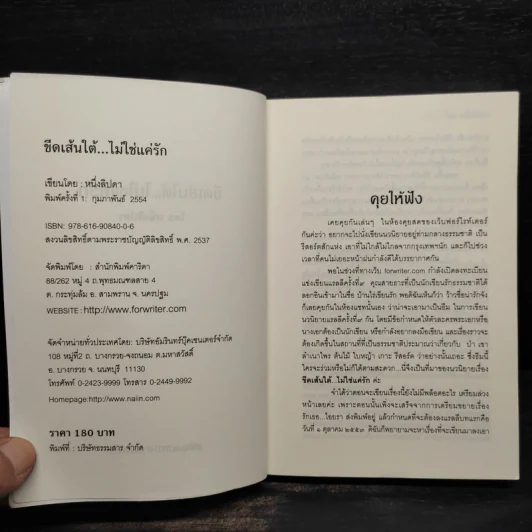 ขีดเส้นใต้...ไม่ใช่แค่รัก
เขียนโดย : หนึ่งลิปดา
พิมพ์ครั้งที่ 1: กุมภาพันธ์ 2554
ISBN: 978-616-90840-0-6
สงวนลิขสิทธิ์ตามพระราชบัญญัติลิขสิทธิ์ พ.ศ. 2537
จัดพิมพ์โดย : สำนักพิมพ์คาริดา
88/262 หมู่ 4 ถ.พุทธมณฑลสาย 4
ต. กระทุ่มล้ม อ. สามพราน จ. นครปฐม
WEBSITE: http://www.forwriter.com
จัดจำหน่ายทั่วประเทศโดย: บริษัทอัมรินทร์บุ๊คเซนเตอร์จำกัด
108 หมู่ที่2 ถ. บางกรวย-จงถนอม ต.มหาสวัสดิ์
อ. บางกรวย จ. นนทบุรี 11130
โทรศัพท์ 0-2423-9999 โทรสาร 0-2449-9992
Homepage:http://www.naiin.com
ราคา 180 บาท
พิมพ์ที่ : บริษัทธรรมสาร จำกัด
คุยให้ฟัง
เคยคุยกันเล่นๆ ในห้องคุยสดของเว็บฟอร์ไรท์เตอร์
กันค่ะว่า อยากจะไปนั่งเขียนนวนิยายอยู่ท่ามกลางธรรมชาติ เป็น
รีสอร์ตสักแห่ง เอาที่ไม่ใกล้ไม่ไกลจากกรุงเทพฯนัก และก็ไปช่วง
เวลาที่คนไม่เยอะหน้าฝนกำลังดีได้บรรยากาศกัน
พอในช่วงที่ทางเว็บ forwriter.com กำลังเปิดลงทะเบียน
แข่งเขียนแรลลี่ครั้งที่๙ คุณสายธารที่เป็นนักเขียนรักธรรมชาติได้
ลอกอินเข้ามาในชื่อ บ้านไร่เขียนรัก พอดิฉันเห็นก็ว่า ว้าวชื่อน่ารักจัง
ก็เลยคุยกันในห้องแชทนั้นเองว่า น่าจะเอามาเป็นธีม ในการเขียน
นวนิยายแรลลี่ครั้งที่๙ กัน โดยมีข้อกำหนดให้ตัวละครพระเอกหรือ
นางเอกต้องเป็นนักเขียน หรือกำลังอยากลงมือเขียน และเรื่องราวจะ
ต้องเกิดขึ้นในสถานที่ที่เป็นธรรมชาติประมาณว่าเกี่ยวกับ ป่า เขา
ลำเนาไพร ต้นไม้ ใบหญ้า เกาะ รีสอร์ต ว่าอย่างนั้นเถอะ ซึ่งธีมนี้
ใครจะร่วมหรือไม่ก็ได้ตามสะดวก...นี่จึงเป็นที่มาของนวนิยายเรื่อง
ขีดเส้นใต้...ไม่ใช่แค่รัก ค่ะ
จำได้ว่าตอนจะเขียนเรื่องนี้ยังไม่มีพล็อตอะไร เตรียมล่วง
หน้าเลยค่ะ เพราะตอนนั้นเพิ่งจะเสร็จจากการเตรียมเขียนเรื่อง
รักเธอ...ไอยรา ส่งพิมพ์อยู่ แล้วกำหนดที่จะต้องลงแรลลี่บทแรกคือ
วันที่ ๑ ตุลาคม ๒๕๕๓ ดิฉันก็พยายามจะหาเรื่องที่จะเขียนมาลงเอา